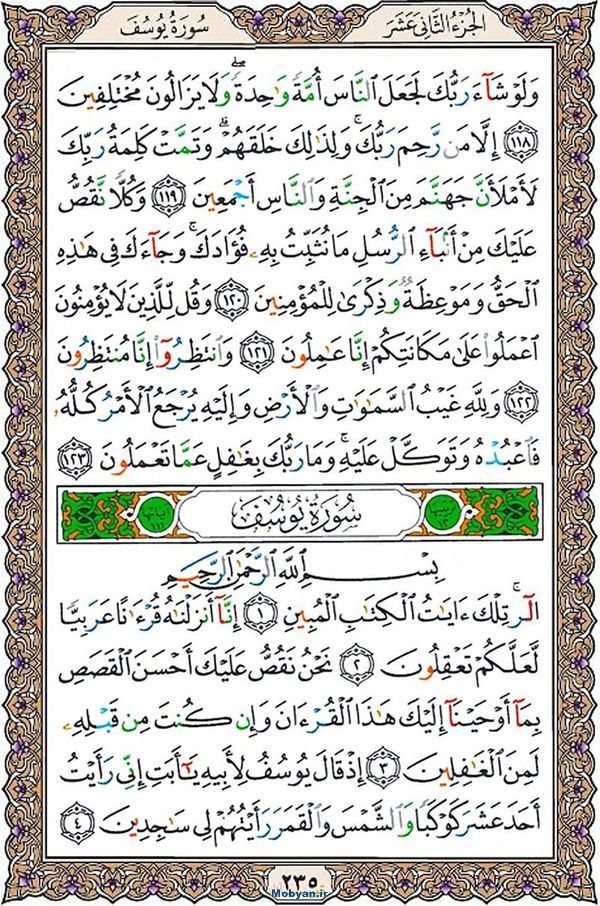 الجزء الثاني عشر
سورة يوسف
وَلَوْ شَآءَ رَبُّكَ لَجَعَلَ ٱلنَّاسَ أُمَّةً وَٰحِدَةً ۖ وَلَا يَزَالُونَ مُخْتَلِفِينَ
﴿١١٨﴾ إِلَّا مَن رَّحِمَ رَبُّكَ ۚ وَلِذَٰلِكَ خَلَقَهُمْ ۗ وَتَمَّتْ كَلِمَةُ رَبِّكَ
لَأَمْلَأَنَّ جَهَنَّمَ مِنَ ٱلْجِنَّةِ وَٱلنَّاسِ أَجْمَعِينَ ﴿١١٩﴾ وَكُلًّا نَّقُصُّ
عَلَيْكَ مِنْ أَنۢبَآءِ ٱلرُّسُلِ مَا نُثَبِّتُ بِهِۦ فُؤَادَكَ ۚ وَجَآءَكَ فِى هَٰذِهِ
ٱلْحَقُّ وَمَوْعِظَةٌ وَذِكْرَىٰ لِلْمُؤْمِنِينَ ﴿١٢٠﴾ وَقُل لِّلَّذِينَ لَا يُؤْمِنُونَ
ٱعْمَلُوا۟ عَلَىٰ مَكَانَتِكُمْ إِنَّا عَٰمِلُونَ ﴿١٢١﴾ وَٱنتَظِرُوٓا۟ إِنَّا مُنتَظِرُونَ
﴿١٢٢﴾ وَلِلَّهِ غَيْبُ ٱلسَّمَٰوَٰتِ وَٱلْأَرْضِ وَإِلَيْهِ يُرْجَعُ ٱلْأَمْرُ كُلُّهُۥ
فَٱعْبُدْهُ وَتَوَكَّلْ عَلَيْهِ ۚ وَمَا رَبُّكَ بِغَٰفِلٍ عَمَّا تَعْمَلُونَ ﴿١٢٣﴾
سُورَةُ يُوسُفَ
بِسْمِ ٱللَّهِ ٱلرَّحْمَٰنِ ٱلرَّحِيمِ
الٓر ۚ تِلْكَ ءَايَٰتُ ٱلْكِتَٰبِ ٱلْمُبِينِ ﴿١﴾ إِنَّآ أَنزَلْنَٰهُ قُرْءَٰنًا عَرَبِيًّا
لَّعَلَّكُمْ تَعْقِلُونَ ﴿٢﴾ نَحْنُ نَقُصُّ عَلَيْكَ أَحْسَنَ ٱلْقَصَصِ
بِمَآ أَوْحَيْنَآ إِلَيْكَ هَٰذَا ٱلْقُرْءَانَ وَإِن كُنتَ مِن قَبْلِهِۦ
لَمِنَ ٱلْغَٰفِلِينَ ﴿٣﴾ إِذْ قَالَ يُوسُفُ لِأَبِيهِ يَٰٓأَبَتِ إِنِّى رَأَيْتُ
أَحَدَ عَشَرَ كَوْكَبًا وَٱلشَّمْسَ وَٱلْقَمَرَ رَأَيْتُهُمْ لِى سَٰجِدِينَ ﴿٤﴾
٢٣٥
Mobyan.ir